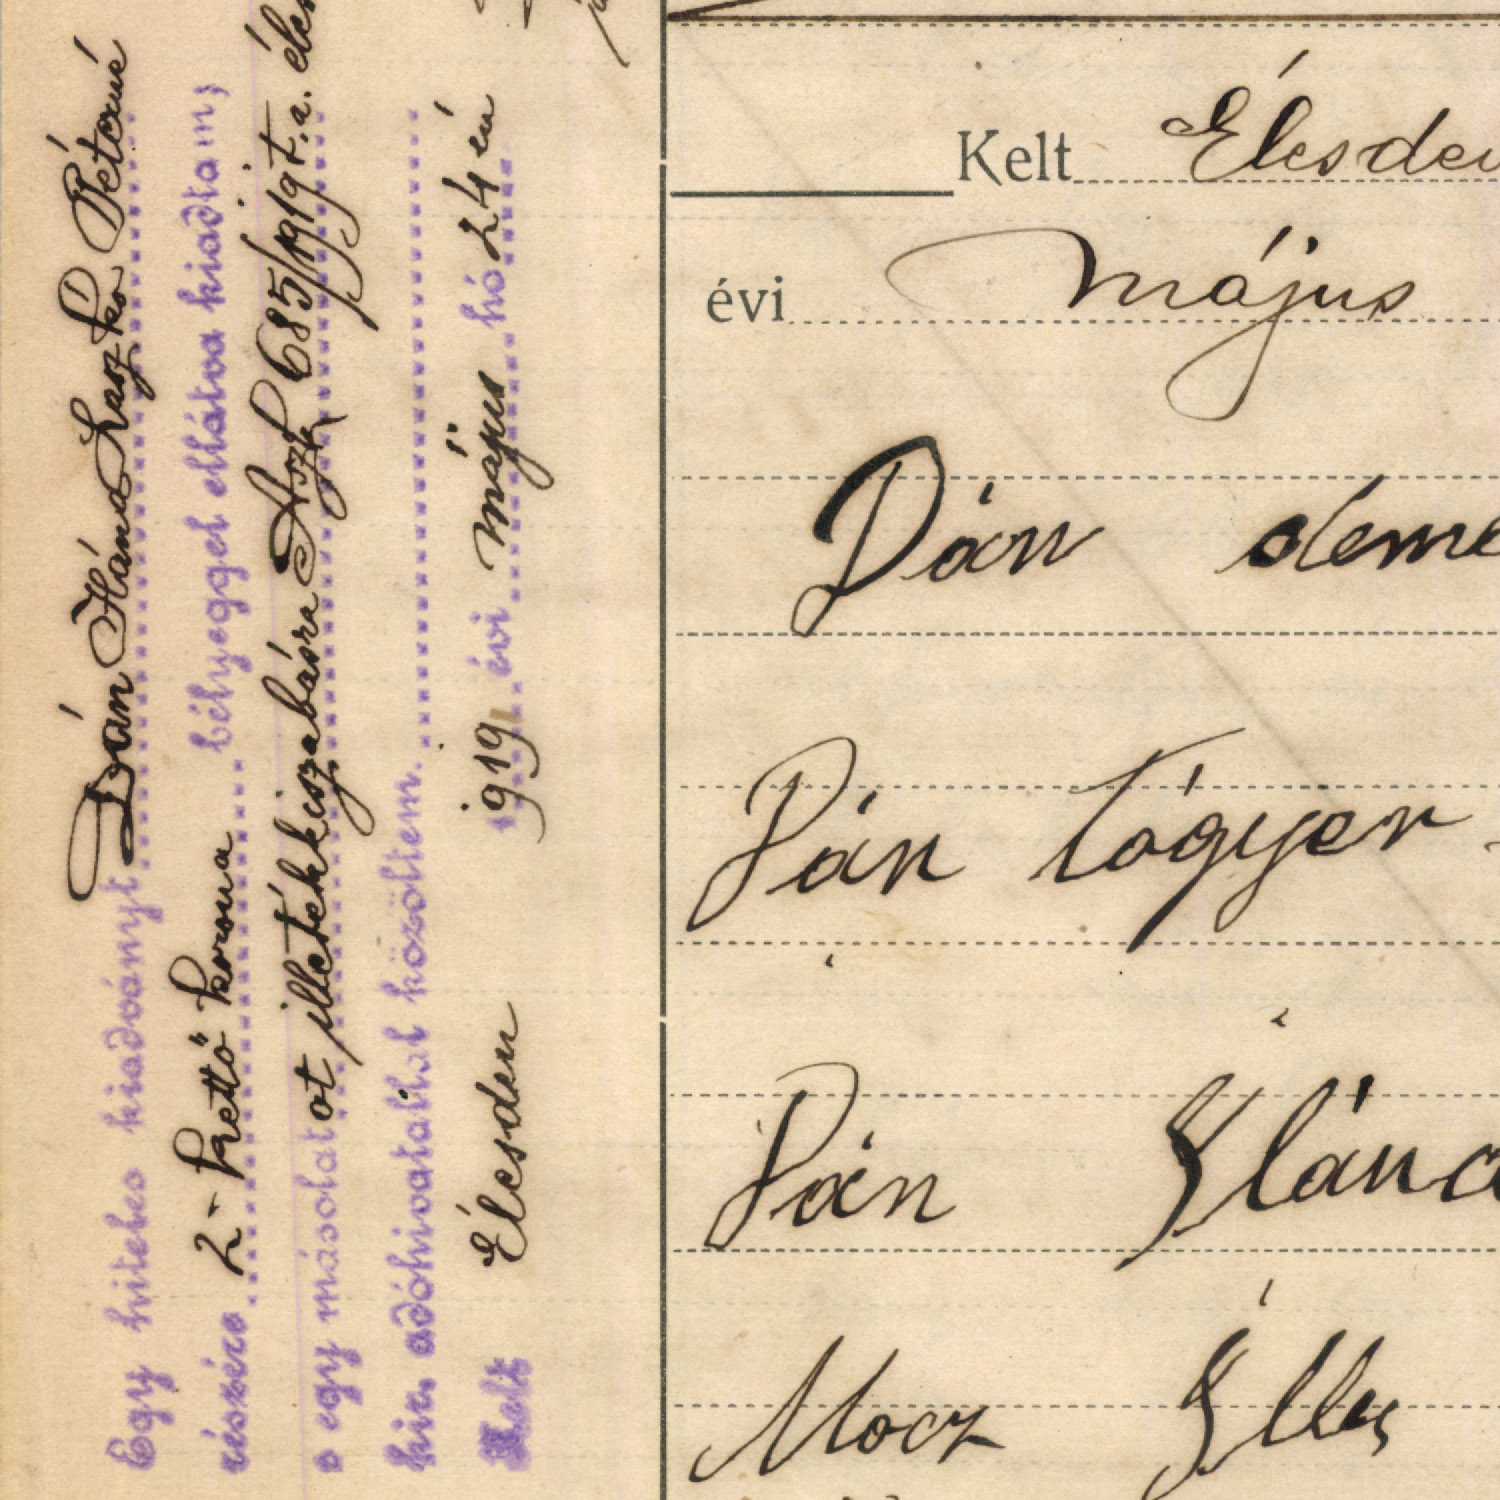 Egy hiteles kiadványt Dán Flánd Laszko Péterné
részére 2 - kettő korona bélyeggel ellátva kiadtam,
s egy másolatot illetékkiszabásra Aszk 685/1919 t. a. élesdi
kir. adóhivatallal közöltem.
Kelt Élesden 1919 évi május hó 24 én
Kelt Élesden
évi május
Dán deme
Dán Tógyer
Dán Flánd
Mocz Illes